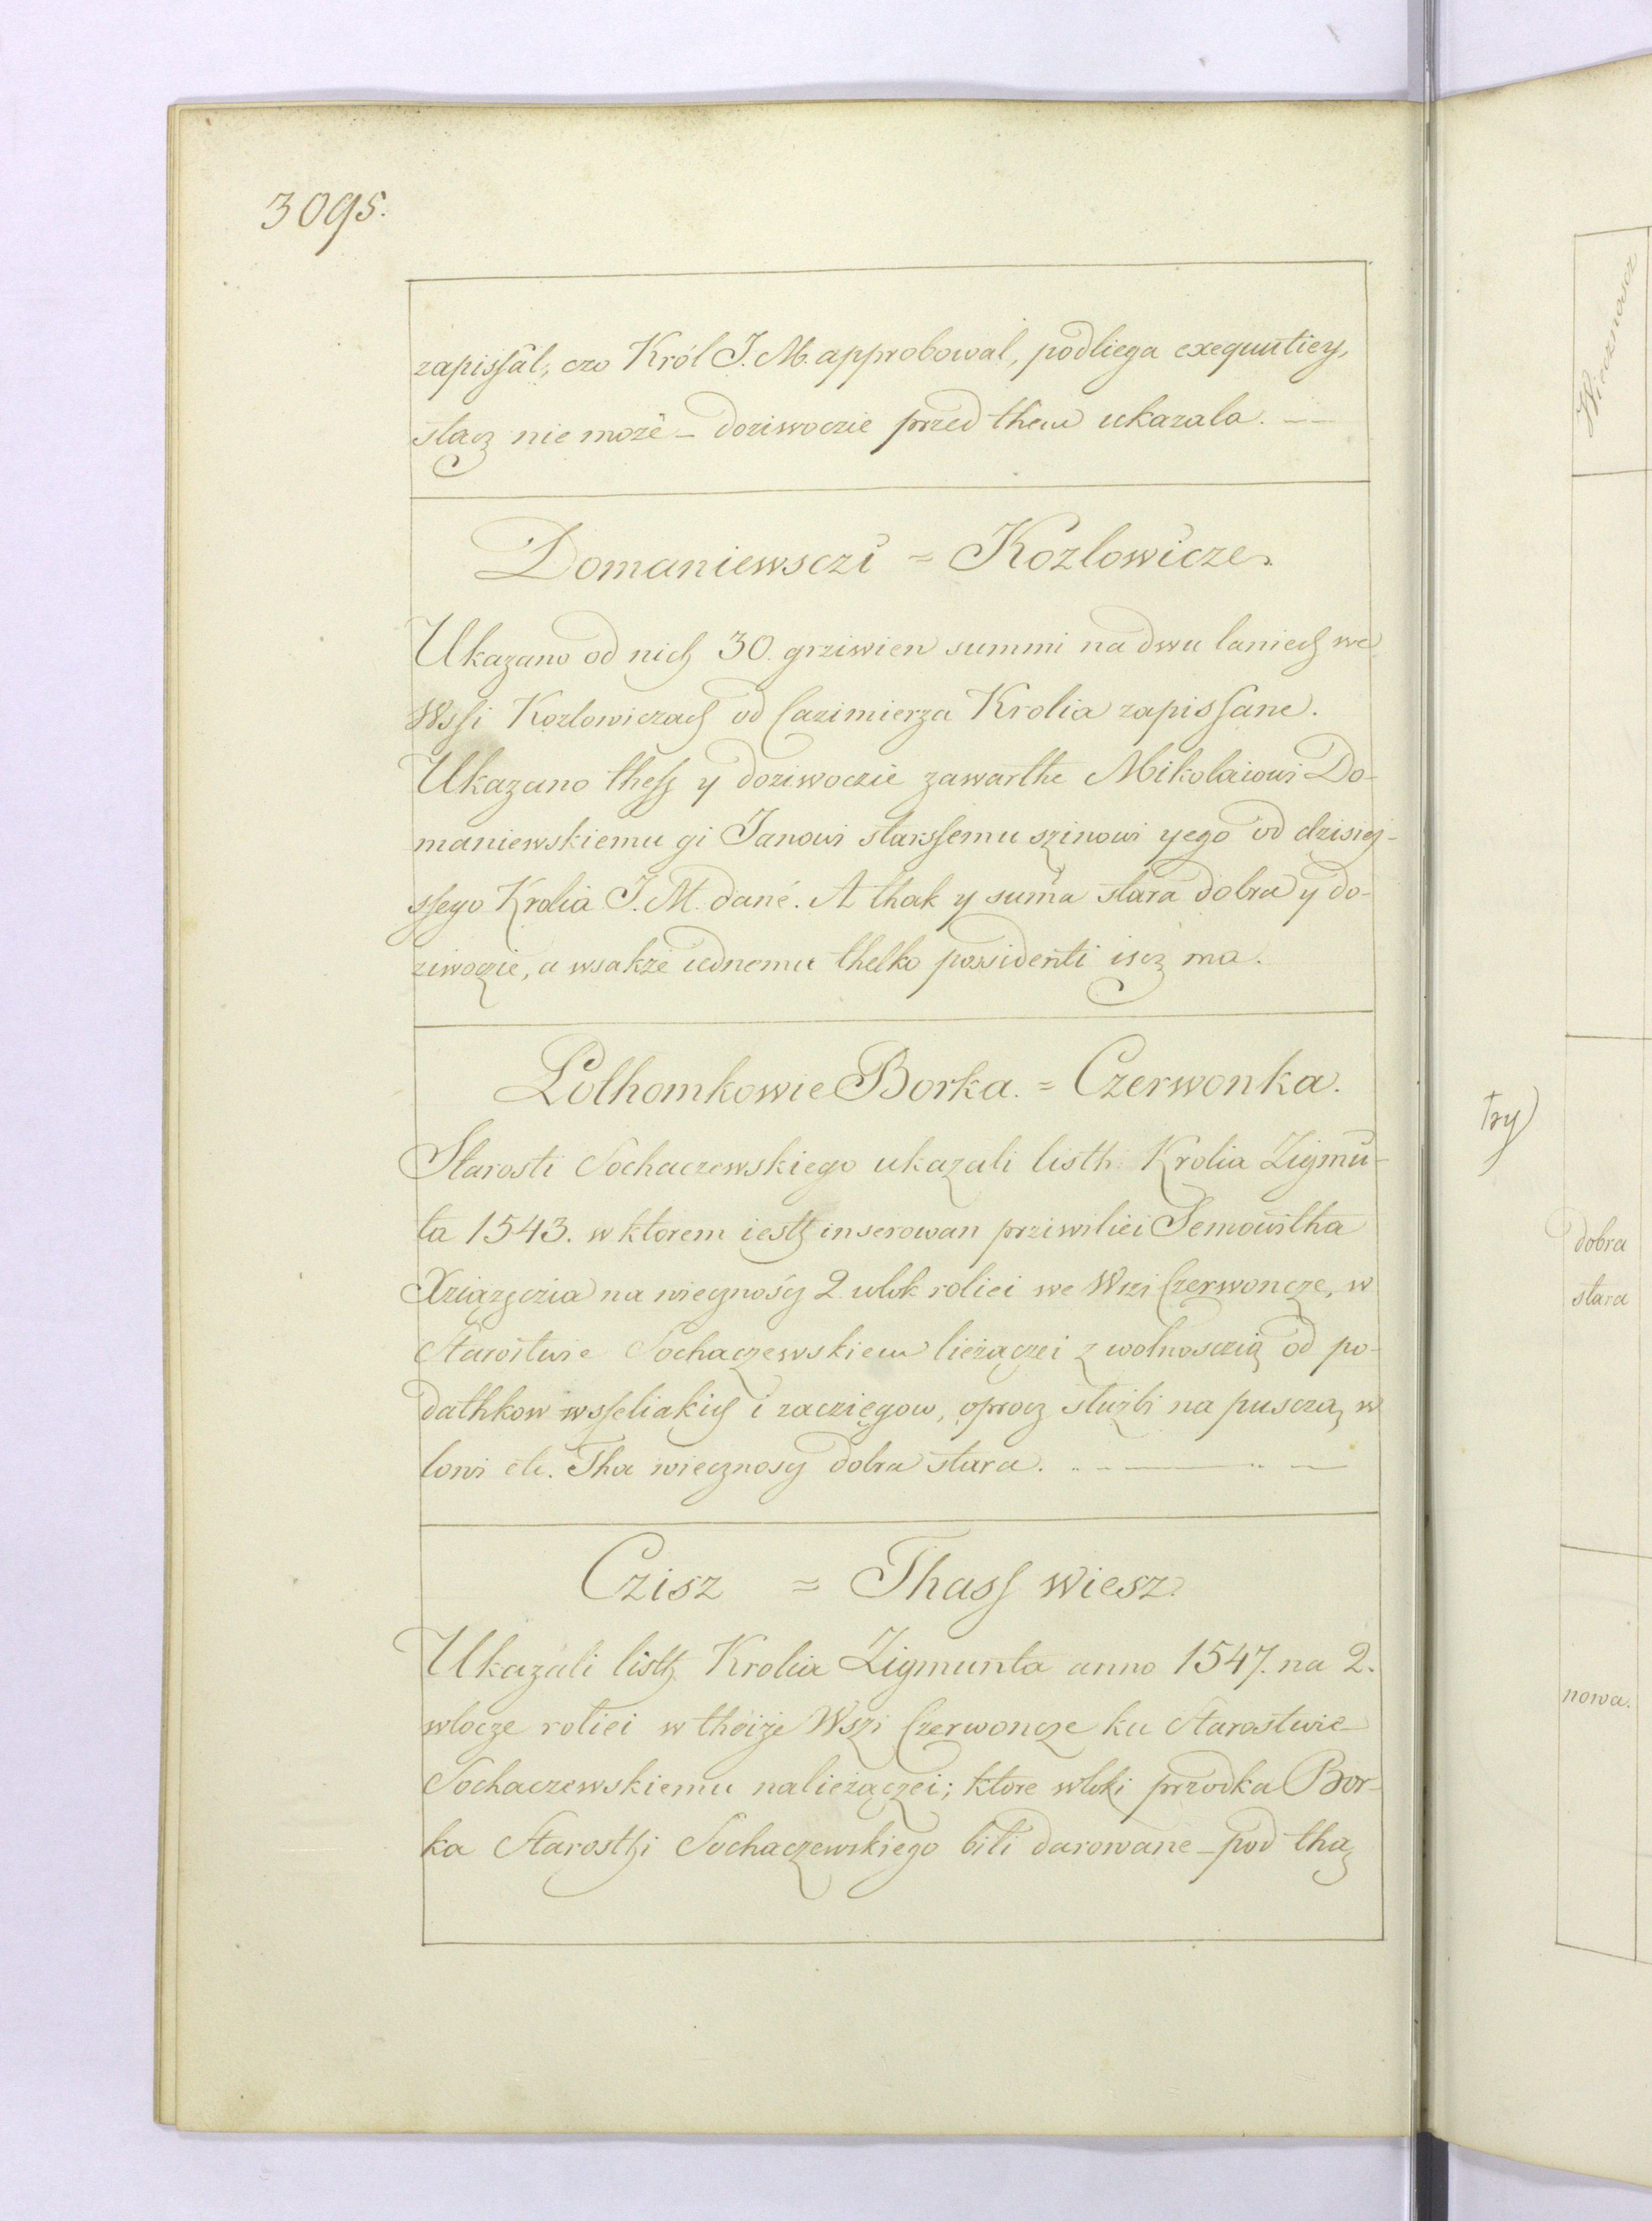 3095.
zapissal, czo Król J. M. approbowal, podliega exequutiey,
stacz nie może – doziwoczie przed them ukazala. —
Domaniewsczi = Kozlowicze.
Ukazano od nich 30. grziwien summi na dwu laniech we
Wssi Kozlowiczach od Cazimierza Krolia zapissane.
Ukazano thesz y doziwoczie zawarthe Mikolaiowi Do-
maniewskiemu gi Janowi starssemu szinowi yego od dzisiej-
ssego Krolia J. M. dané. A thak y suma stara dobra y do-
ziwoczie, a wsakże iednemu thelko possidenti iscz ma.
Pothomkowie Borka. = Czerwonka.
Starosti Sochaczewskiego ukazali listh Krolia Zigmu-
ta 1543. w ktorem iesth inserowan prziwiliei Semowitha
Xziązęczia na wiecznoscz 2. wlok roliei we Wszi Czerwoncze, w
Starostwie Sochaczewskiem lieżączei z wolnosczią od po-
dathkow wsseliakich i zacziegow, oprocz służbi na puscza, w
lowi etc. Tha wiecznoscz dobra stara. — —
Czisz = Thass wiesz.
Ukazali listh Krolia Zigmunta anno 1547. na 2.
wlocze roliei w theiże Wszi Czerwoncze ku Starostwie
Sochaczewskiemu nalieżączei; ktore wloki przodka Bor-
ka Starosthi Sochaczewskiego bili darowane – pod thą
Wiecznoscz
try)
dobra
stara
nowa.